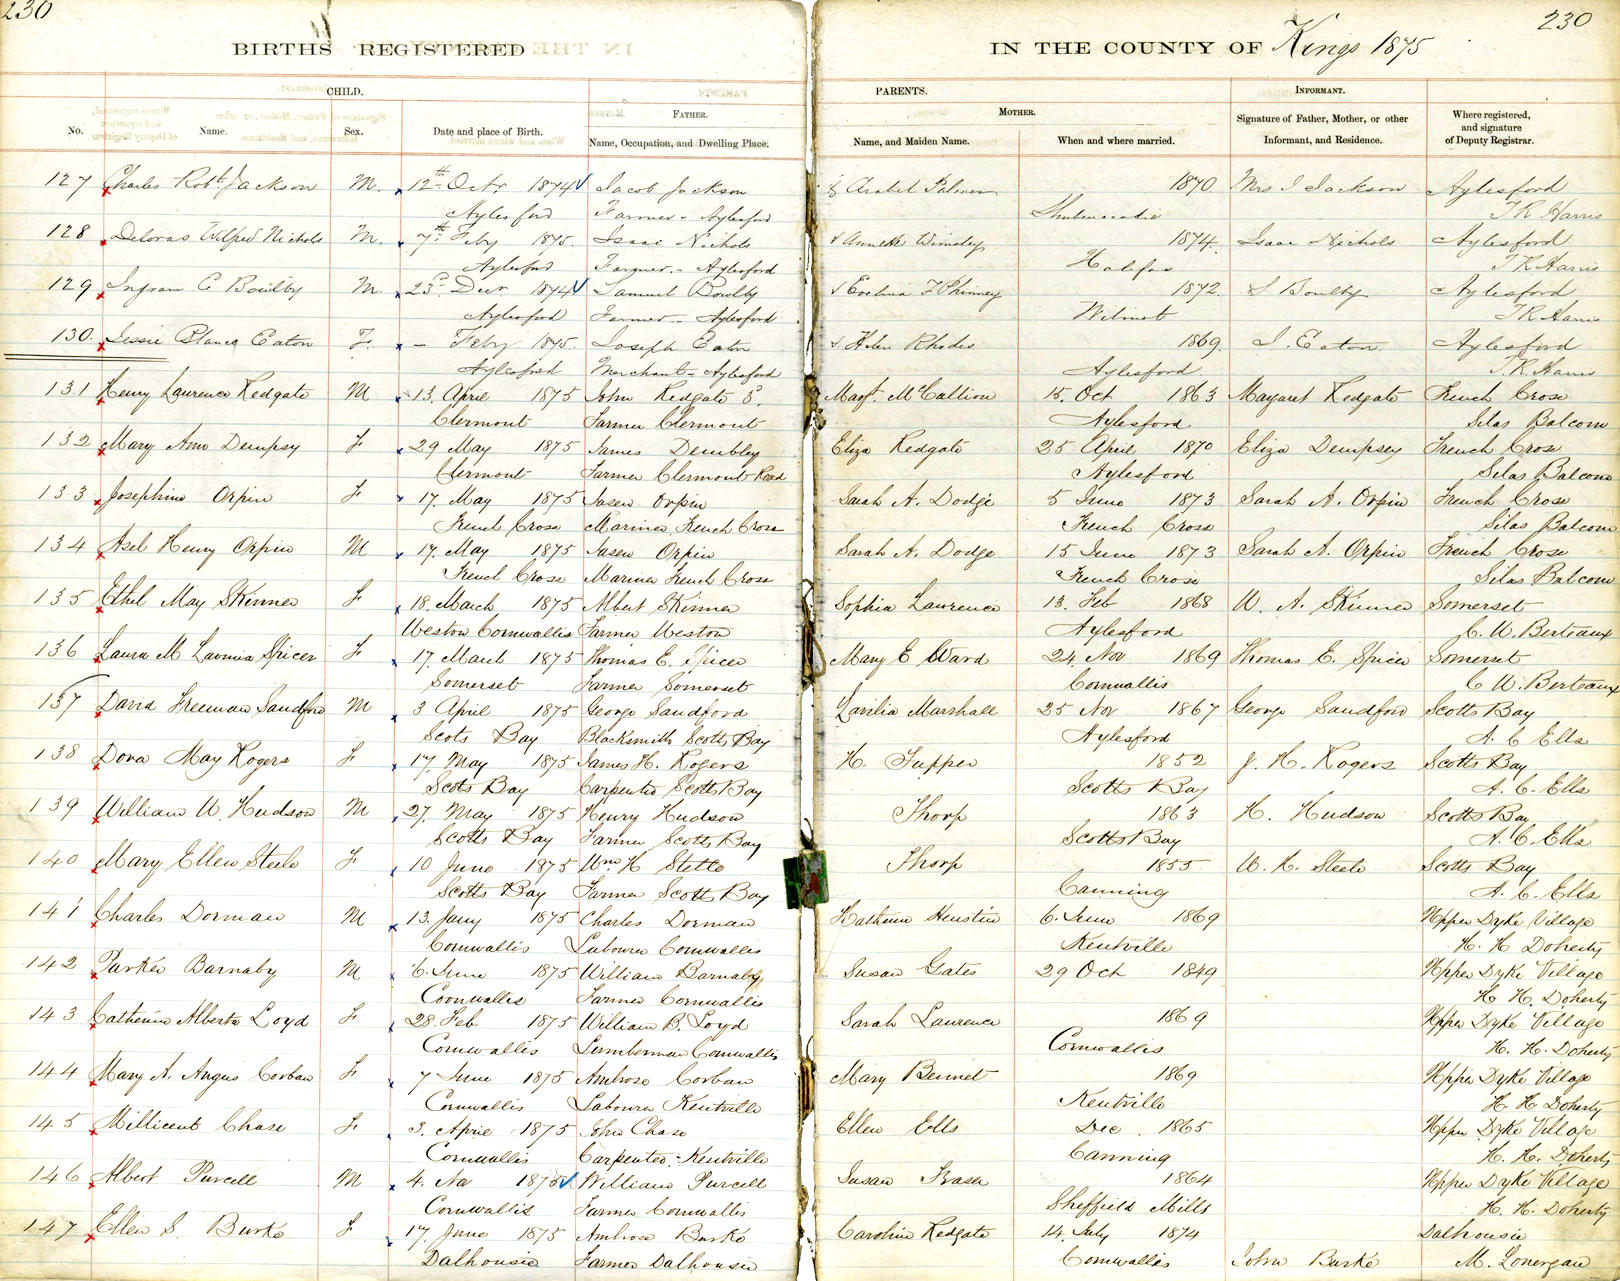 230
230
BIRTHS REGISTERED
IN THE COUNTY OF Kings 1875
CHILD.
PARENTS.
INFORMANT.
FATHER.
MOTHER.
No.
Name.
Sex.
Date and place of Birth.
Name, Occupation, and Dwelling Place.
Name, and Maiden Name.
When and where married.
Signature of Father, Mother, or other
Informant, and Residence.
Where registered,
and signature
of Deputy Registrar.
127 Charles Robt Jackson M. 12th Octr 1874 Jacob Jackson & Arabel 1870 Mrs J Jackson Aylesford
Aylesford Farmer - Aylesford Shubenacadie T R Harris
128 Deloras Wilfred Nichols M. 7th Feby 1875. Isaac Nichols & Annetta 1874. Isaac Nichols Aylesford
Aylesford Farmer - Aylesford Halifax T R Harris
129 Ingram C Boulby M. 23d Decr 1874 Samuel Boulby & Evelina F Phinney 1872. S Boulby Aylesford
Aylesford Farmer - Aylesford Wilmot T R Harris
130. Jessie Blanch Eaton F. - Feby 1875. Joseph Eaton & Helen Rhodes 1869. J. Eaton Aylesford
Aylesford Merchant - Aylesford Aylesford T. R. Harris
131 Henry Laurence Redgate M 13. April 1875 John Redgate 3d. Margt. McCallion 15. Oct 1863 Margaret Redgate French Cross
Clermont Farmer Clermont Aylesford Silas Balcom
132 Mary Ann Dempsy F 29 May 1875 James Dembley Eliza Redgate 25 April 1870 Eliza Dempsey French Cross
Clermont Farmer Clermont Road Aylesford Silas Balcom
133 Josephine Orpin F 17. May 1875 Jasen Orpin Sarah A. Dodge 5 June 1873 Sarah A. Orpin French Cross
French Cross Mariner French Cross French Cross Silas Balcom
134 Asel Henry Orpin M 17. May 1875 Jasen Orpin Sarah A. Dodge 15 June 1873 Sarah A. Orpin French Cross
French Cross Mariner French Cross French Cross Silas Balcom
135 Ethel May Skinner F 18. March 1875 Albert Skinner Sophia Laurence 13. Feb 1868 W. A. Skinner Somerset
Weston Cornwallis Farmer Weston Aylesford C. W. Berteaux
136 Laura M Lavinia Spicer F 17. March 1875 Thomas E. Spicer Mary E Ward 24. Nov 1869 Thomas E. Spicer Somerset
Somerset Farmer Somerset Cornwallis C W. Berteaux
137 David Freeman Sandford M 3 April 1875 George Sandford Lavilia Marshall 25 Nov 1867 George Sandford Scotts Bay
Scots Bay Blacksmith Scotts Bay Aylesford A. C Ells
138 Dora May Rogers F 17. May 1875 James H. Rogers H. Tupper 1852 J. H. Rogers Scotts Bay
Scots Bay Carpenter Scotts Bay Scotts Bay A. C. Ells
139 William W. Hudson M 27. May 1875 Henry Hudson Thorp 1863 H. Hudson Scotts Bay
Scotts Bay Farmer Scotts Bay Scotts Bay A. C. Ells
140 Mary Ellen Steele F 10 June 1875 Wm H Stetle Thorp 1855 W. H. Steele Scotts Bay
Scotts Bay Farmer Scotts Bay Canning A. C. Ells
141 Charles Dorman M 13. Jany 1875 Charles Dorman Katherine 6. June 1869 Upper Dyke Village
Cornwallis Labourer Cornwallis Kentville H. H Doherty
142 Parker Barnaby M 6. June 1875 William Barnaby Susan Gates 29 Oct 1849 Upper Dyke Village
Cornwallis Farmer Cornwallis H H. Doherty
143 Catherine Alberta Loyd F 28. Feb 1875 William B. Loyd Sarah Laurence 1869 Upper Dyke Village
Cornwallis Lumberman Cornwallis Cornwallis H. H. Doherty
144 Mary A. Angus Corban F 7 June 1875 Ambrose Corban Mary Bennet 1869 Upper Dyke Village
Cornwallis Labourer Kentville Kentville H. H Doherty
145 Millicent Chase F 3. April 1875 John Chase Ellen Ells Dec. 1865 Upper Dyke Village
Cornwallis Carpenter. Kentville Canning H. H. Doherty
146 Albert Purcell M 4. Nov 1875 William Purcell Susan Fraser 1864 Upper Dyke Village
Cornwallis Farmer Cornwallis Sheffield Mills H. H. Doherty
147 Ellen S. Burke F 17. June 1875 Ambrose Burke Caroline Redgate 14. July 1874 Dalhousie
Dalhousie Farmer Dalhousie Cornwallis John Burke M. Lonergan